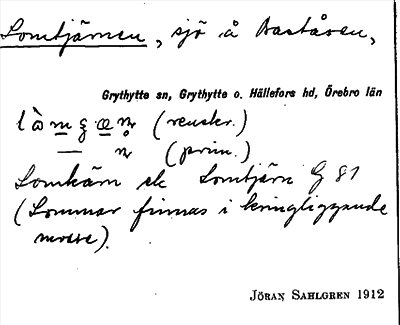 Lomtjärnen, sjö å Baståsen,
Grythytte sn, Grythytte o. Hällefors hd, Örebro län
(renskr.)
— (prim.)
Lomkärn ek Lomtjärn G 81
(Lommar finnas i kringliggande
mosse).
JÖRAN SAHLGREN 1912